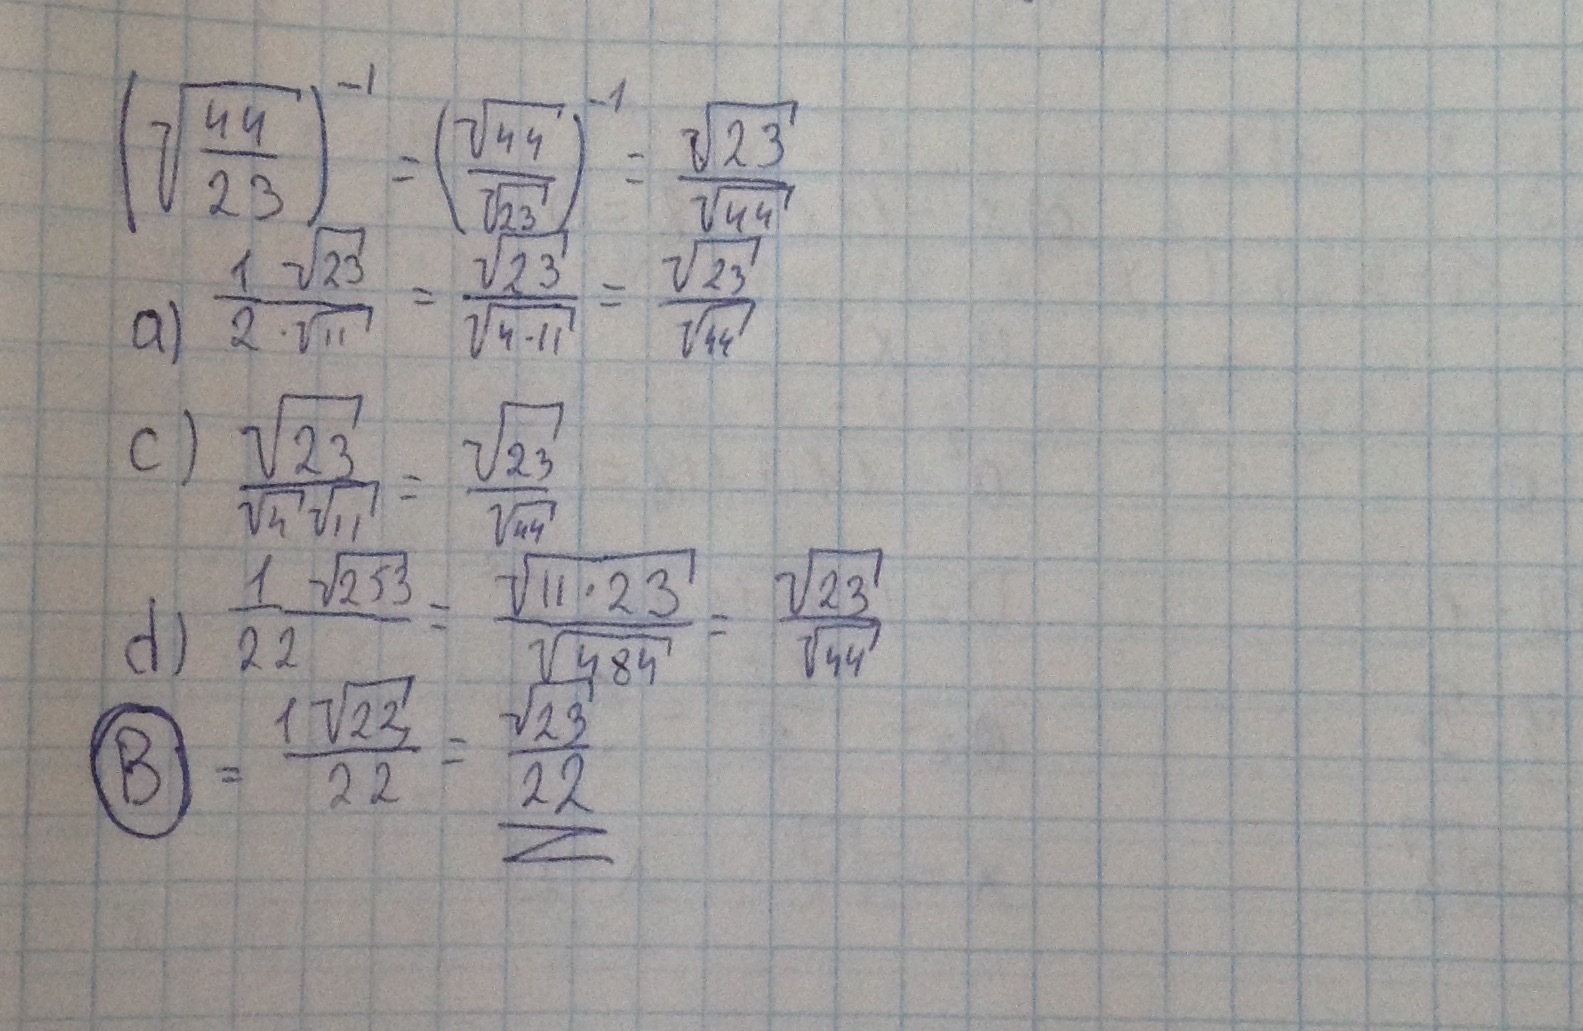 (√(44/23))⁻¹ = (√44/√23)⁻¹ = √23/√44
a) 1 √23/2·√11 = √23/√4·11 = √23/√44
c) √23/√4 √11 = √23/√44
d) 1 √253/22 = √11·23/√484 = √23/√44
B = 1√23/22 = √23/22